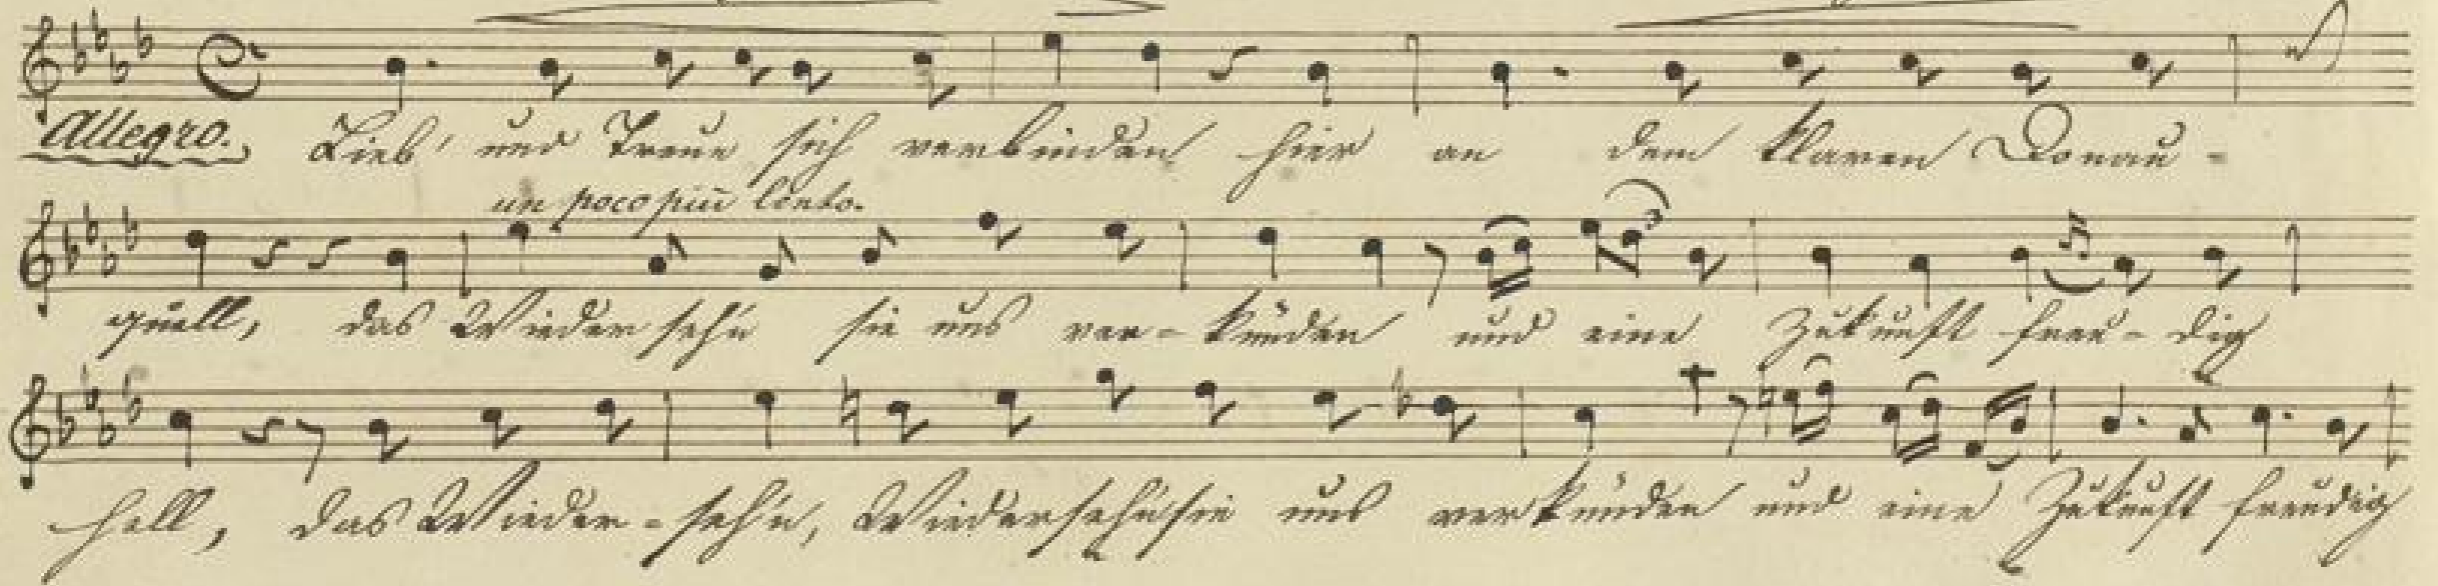 Allegro. Lieb' und Treue sich verbinden hier an dem klaren Donau-
un poco più lento.
quell, das Wiedersehn sie uns ver-künden und eine Zukunft freu-dig
3
hell, das Wieder-sehn, Wiedersehn sie uns verkünden und eine Zukunft freudig